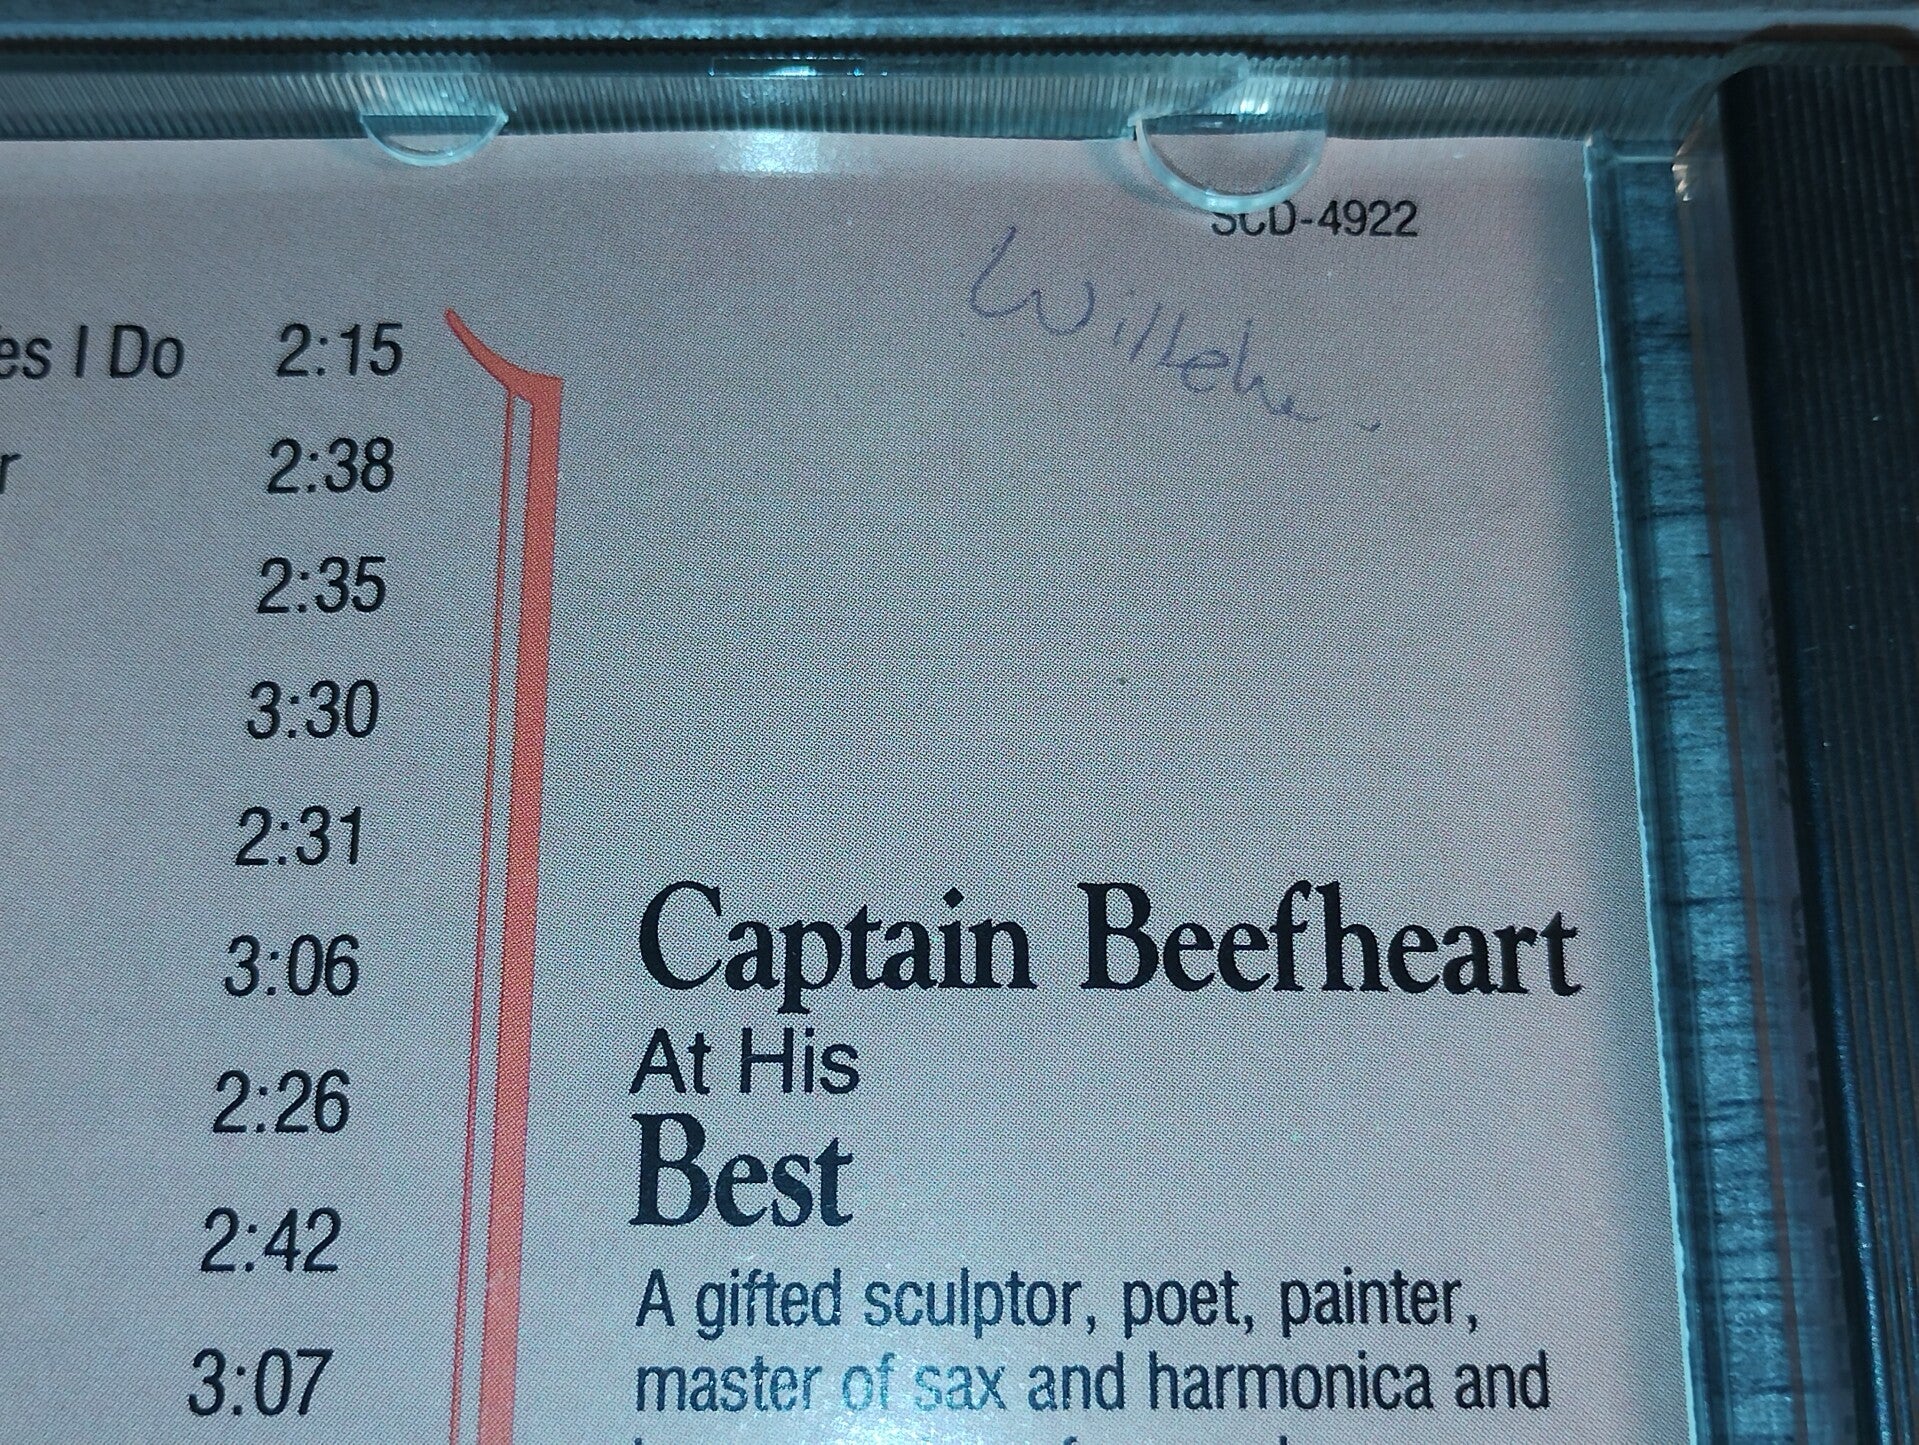 SCD-4922
es I Do 2:15
r 2:38
2:35
3:30
2:31
3:06
2:26
2:42
3:07
Captain Beefheart
At His
Best
A gifted sculptor, poet, painter,
master of sax and harmonica and